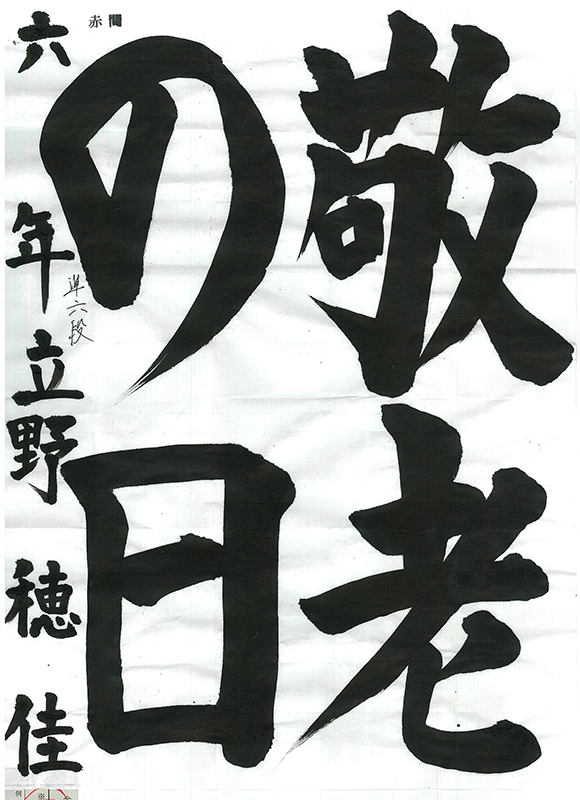 敬老
の日
六年立野穂佳
準六段
赤間